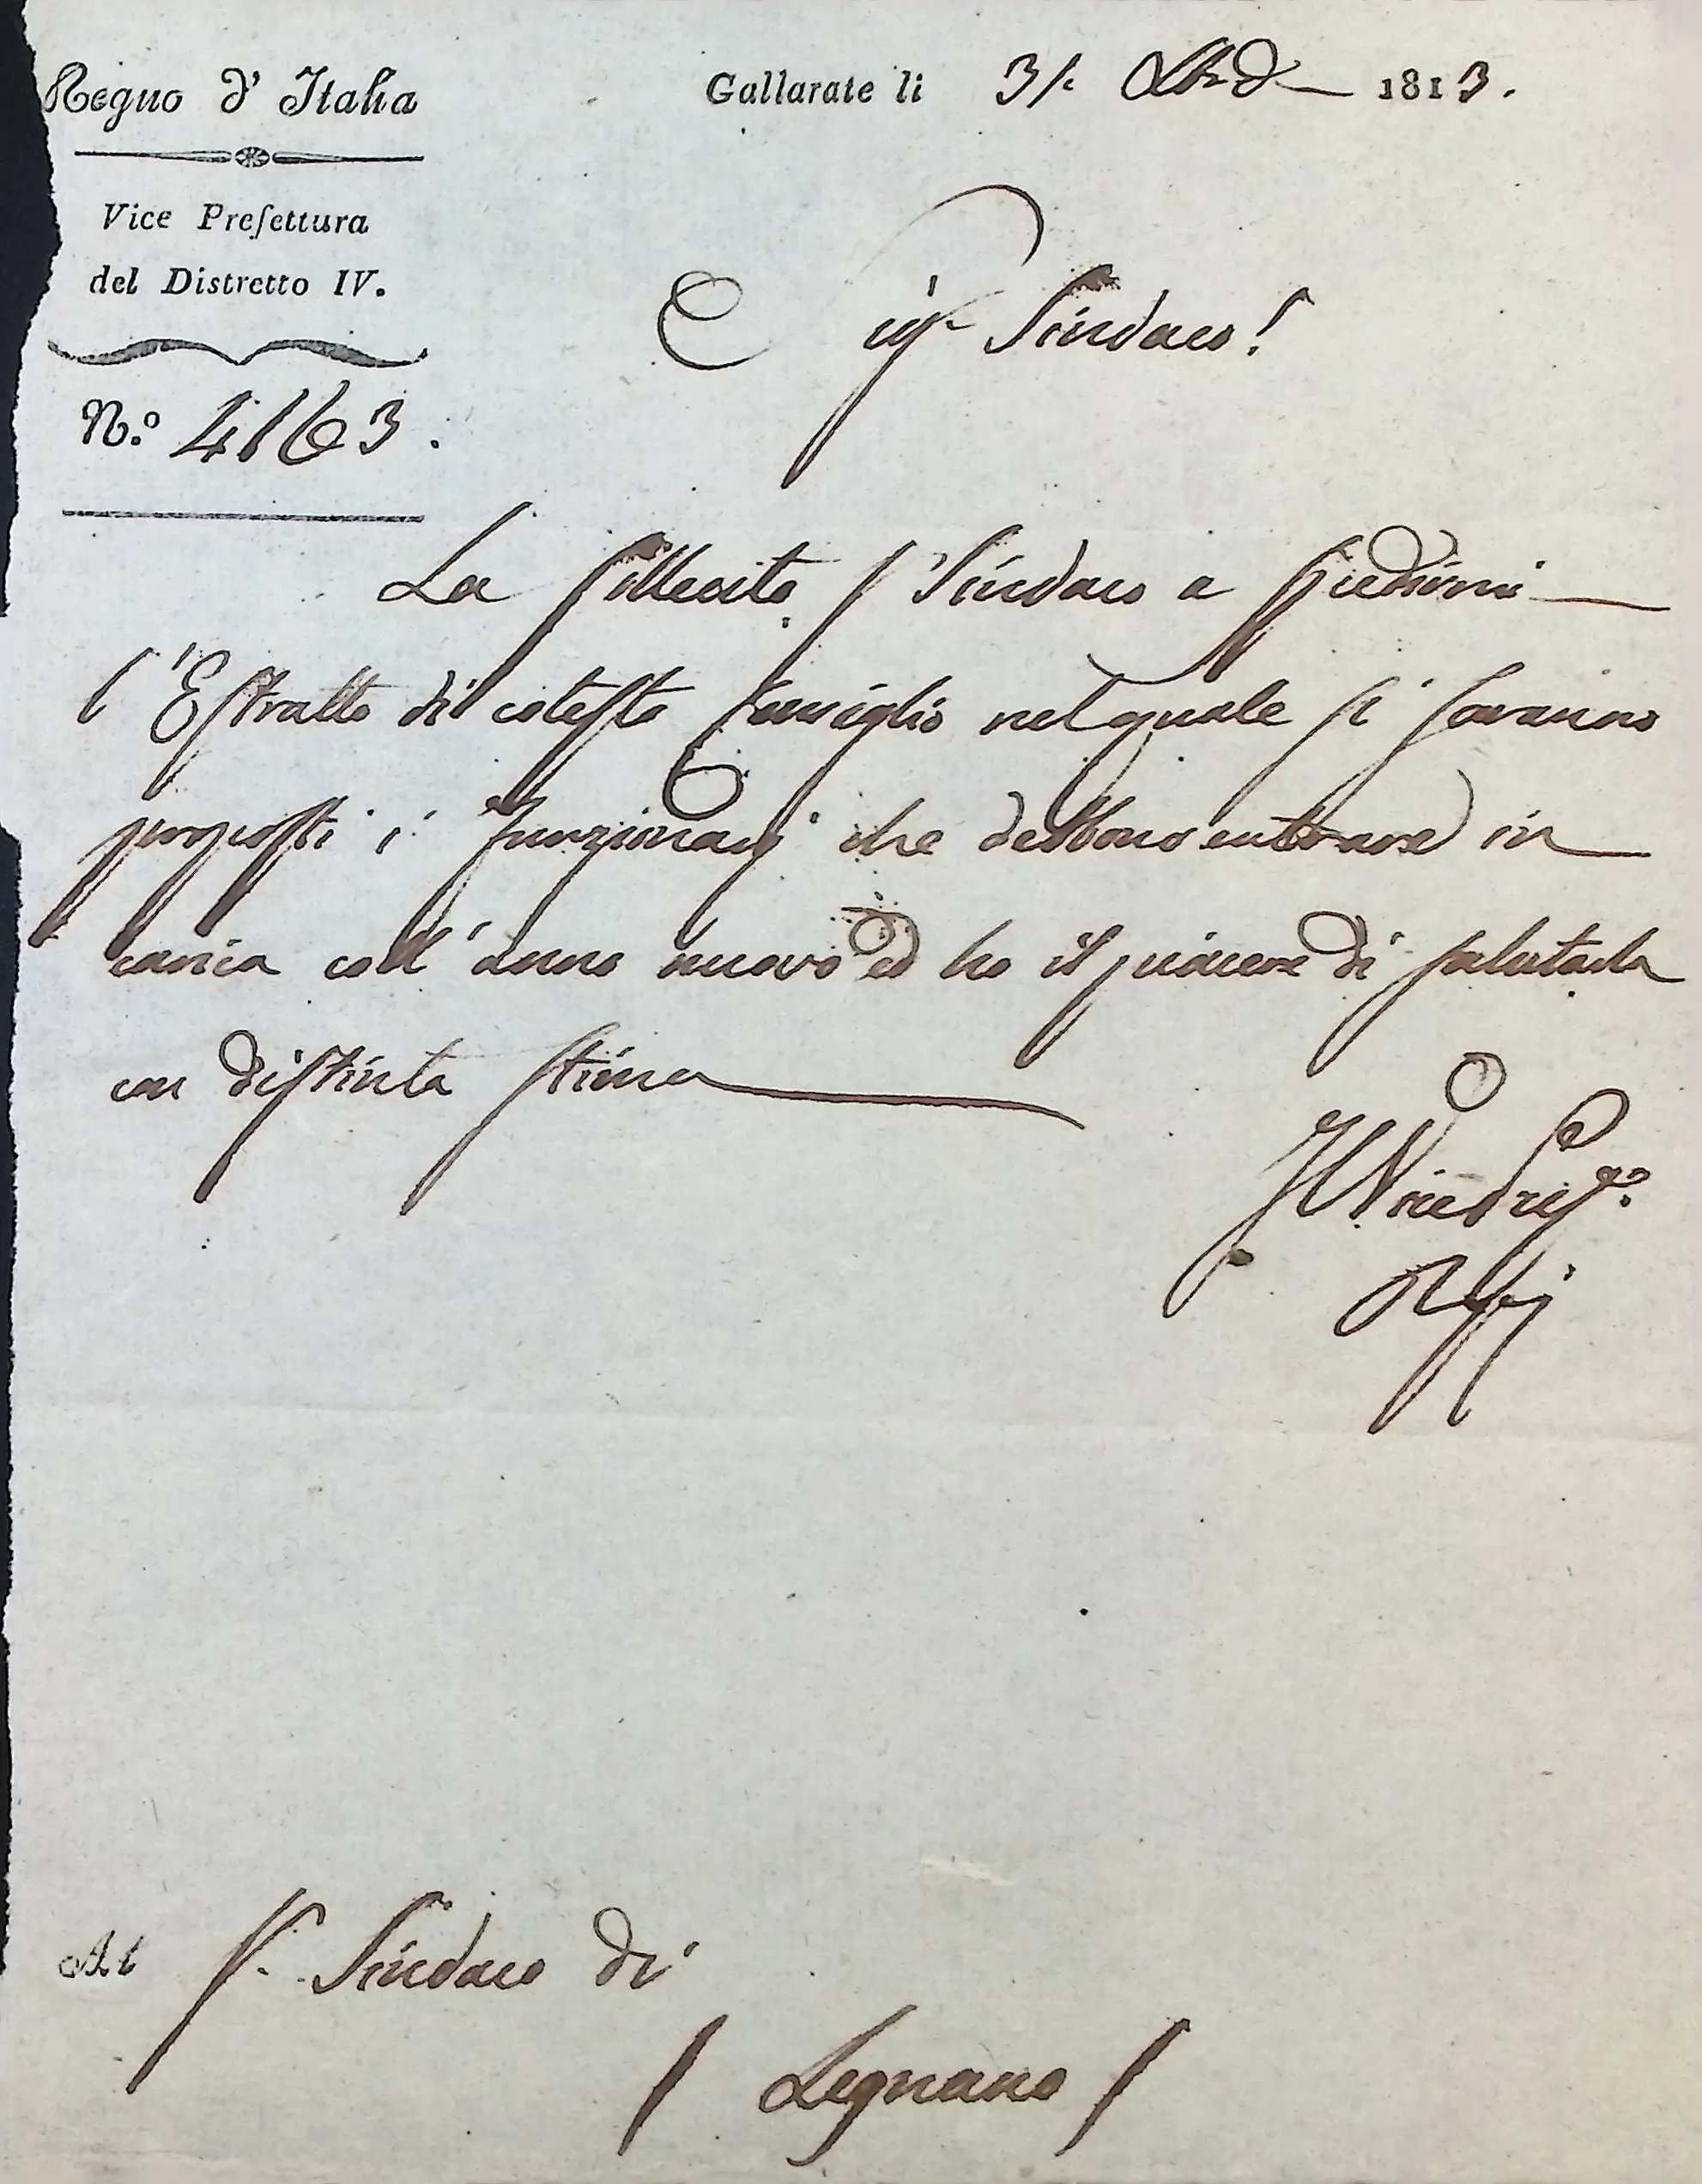 Regno d' Italia
Gallarate li 31. 1813.
Vice Prefettura
del Distretto IV.
N.º 4163.
Sindaco!
La sollecito S. Sindaco a spedirmi
l'Estratto di cotesto Consiglio nel quale si saranno
proposti i funzionarj che debbono entrare in
carica coll' anno nuovo ed ho il piacere di salutarla
con distinta stima
Il Vice Pref.º
Al S.r Sindaco di
Legnano